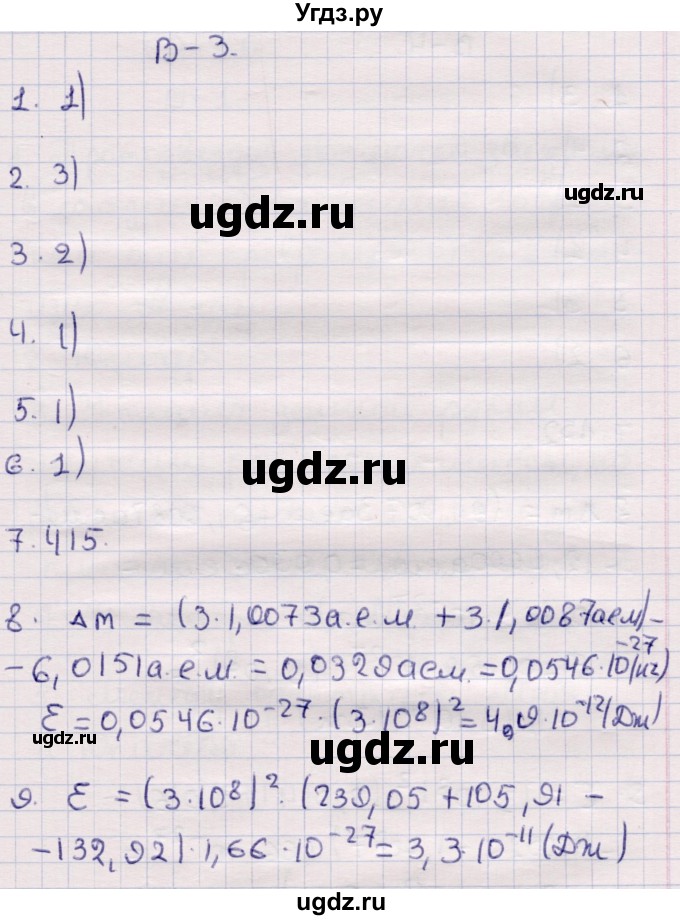 Угдз.ру
В-3.
1. 1)
2. 3)
ugdz.ru
ugdz.ru
3. 2)
4. 1)
5. 1)
ugdz.ru
6. 1)
ugdz.ru
7. 415.
8. Δm = (3·1,0073а.е.м + 3·1,0087аем)-
-6,0151а.е.м. = 0,0329аем. = 0,0546·10⁻²⁷(кг)
ε = 0,0546·10⁻²⁷·(3·10⁸)² = 4,9·10⁻¹²(Дж)
ugdz.ru
ugdz.ru
9. ε = (3·10⁸)²·(239,05 + 105,91 -
-132,92)·1,66·10⁻²⁷ = 3,3·10⁻¹¹(Дж)
ugdz.ru
ugdz.ru